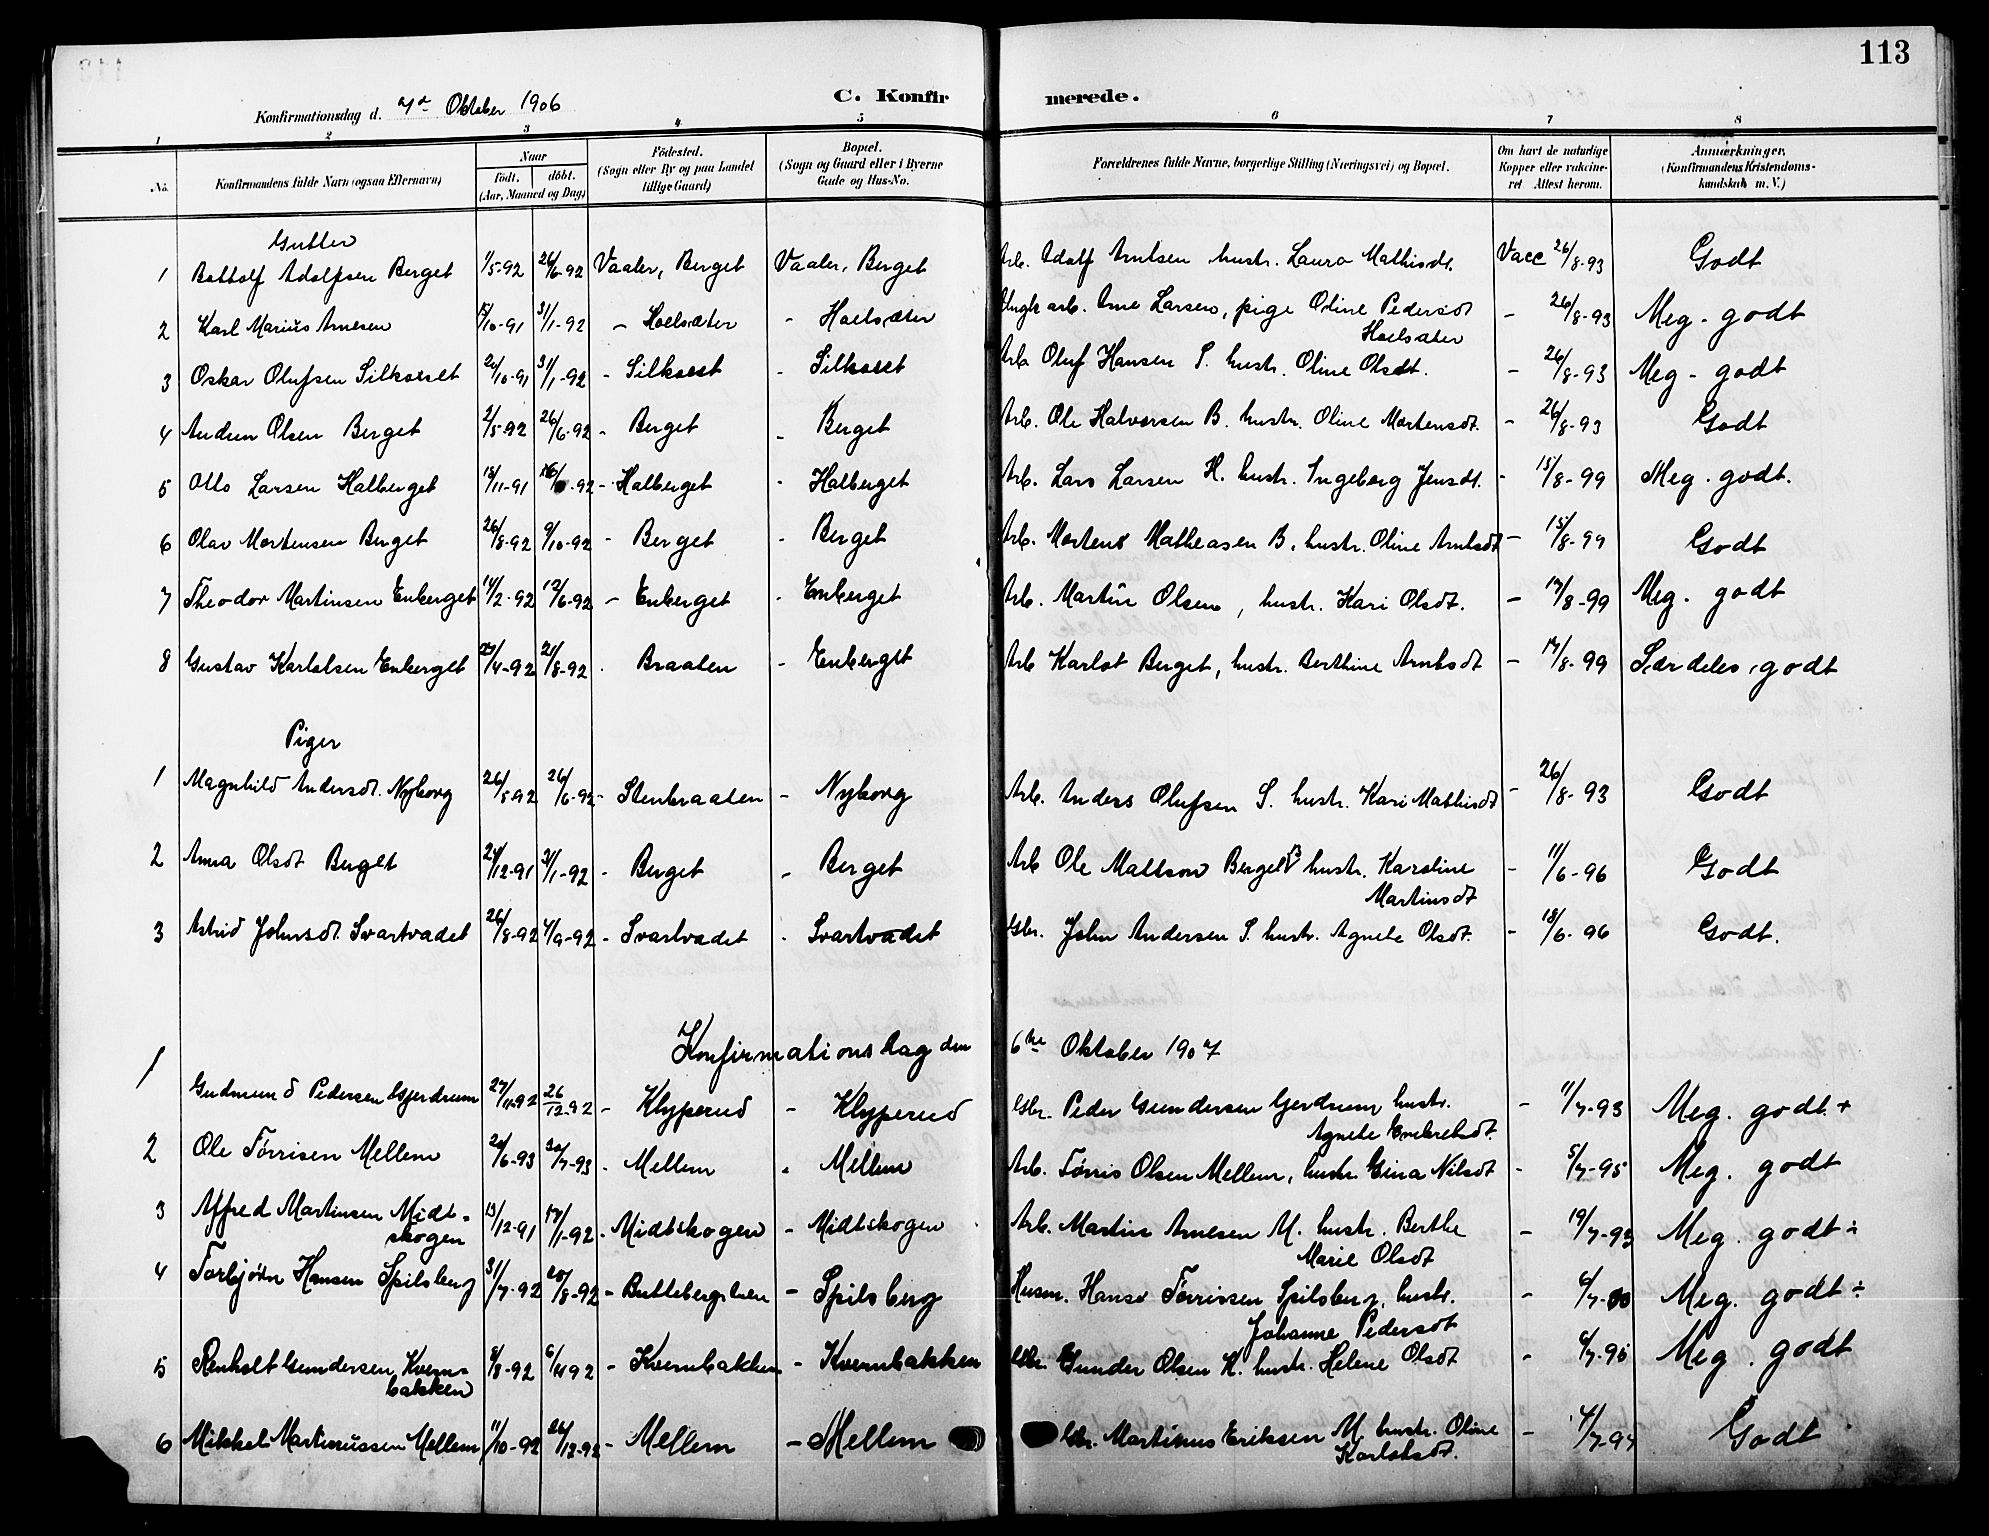 113
Konfirmationsdag d. 7de Oktober 1906
C. Konfirmerede.
1 2 3 4 5 6 7 8
No. Konfirmandens fulde Navn (ogsaa Efternavn) Naar født. døbt. (Aar, Maaned og Dag) Fødested. (Sogn eller By og paa Landet tillige Gaard) Bopæl. (Sogn og Gaard eller i Byerne Gade og Hus-No. Forældrenes fulde Navne, borgerlige Stilling (Næringsvei) og Bopæl. Om havt de naturlige Kopper eller vakcineret. Attest herom. Anmærkninger, (Konfirmandens Kristendomskundskab m. V.)
Gutter
1 Bottolf Adolfsen Berget 1/5-92 26/6-92 Vaaler, Berget Vaaler, Berget Arb. Adolf Arntsen hustr. Laura Mathisdt. Vacc 26/8-93 Godt
2 Karl Marius Arnesen 15/10-91 31/1-92 - Hoelsæter - Hoelsæter Ungk. arb. Arne Larsen, pige Oline Pedersdt - 26/8-93 Meg. godt
Hoelsæter
3 Oskar Olufsen Silkoset 20/10-91 31/1-92 - Silkoset - Silkoset Arb. Oluf Hansen S. hustr. Oline Olsdt. - 26/8-93 Meg. godt
4 Andreas Olsen Berget 2/5-92 26/6-92 - Berget - Berget Arb. Ole Halvorsen B. hustr. Oline Mortensdt. - 26/8-93 Godt
5 Otto Larsen Halberget 13/11-91 -92 - Halberget - Halberget Arb. Lars Larsen H. hustr. Ingeborg Jensdt. - 15/8-99 Meg. godt.
6 Olav Mortensen Berget 26/8-92 9/10-92 - Berget - Berget Arb. Morten Matheasen B. hustr. Oline Arntsdt - 15/8-99 Godt
7 Theodor Martinsen Enberget 14/2-92 12/6-92 - Enberget - Enberget Arb. Martin Olsen, hustr. Kari Olsdt. - 17/8-99 Meg. godt
8 Gustav Karlotsen Enberget /4-92 21/8-92 - Braaten - Enberget Arb Karlot Berget, hustr. Berthine Arntsdt - 17/8-99 Særdeles godt
Piger
1 Magnhild Andersdt. Nyborg 26/5-92 26/6-92 - Stenbraaten - Nyborg Arb. Anders Olufsen S. hustr. Kari Mathisdt - 26/8-93 Godt
2 Anna Olsdt Berget 24/12-91 31/1-92 - Berget - Berget Arb Ole Mattson Berget hustr. Karoline - 11/6-96 Godt
Martinsdt
3 Astrid Johnsdt. Svartvadet 26/8-92 4/9-92 - Svartvadet - Svartvadet Gbr. John Andersen S. hustr. Agnete Olsdt. - 18/6-96 Godt.
Konfirmationsdag den 6te Oktober 1907
1 Gudmund Pedersen Gjerdrum 27/11-92 26/12-92 - Klyperud - Klyperud Gbr. Peder Gundersen Gjerdrum hustr. - 11/7-93 Meg. godt +
Agnete Embretsdt.
2 Ole Tørrisen Mellem 20/6-93 30/7-93 - Mellem - Mellem Arb. Tørris Olsen Mellem, hustr. Gina Nilsdt - 5/7-95 Meg. godt
3 Alfred Martinsen Midt- 13/12-91 17/1-92 - Midtskogen - Midtskogen Arb. Martin Arnesen M. hustr. Berthe - 19/7-93 Meg. godt ÷
skogen Marie Olsdt
4 Torbjørn Hansen Spilsberg 31/7-92 20/8-92 - Buttebergstuen - Spilsberg Husm. Hans Tørrissen Spilsberg, hustr. - 6/7-00 Meg. godt ÷
Johanne Pedersdt
5 Renholt Gundersen Kvern- /8-92 6/11 92 - Kvernbakken - Kvernbakken Gbr. Gunder Olsen K. hustr. Helene Olsdt - 6/7-95 Meg. godt
bakken
6 Mikkel Martinussen Mellem 11/10-92 26/12-92 - Mellem - Mellem Gbr. Martinus Eriksen M. hustr. Oline - 4/7-94 Godt
Karlotsdt.